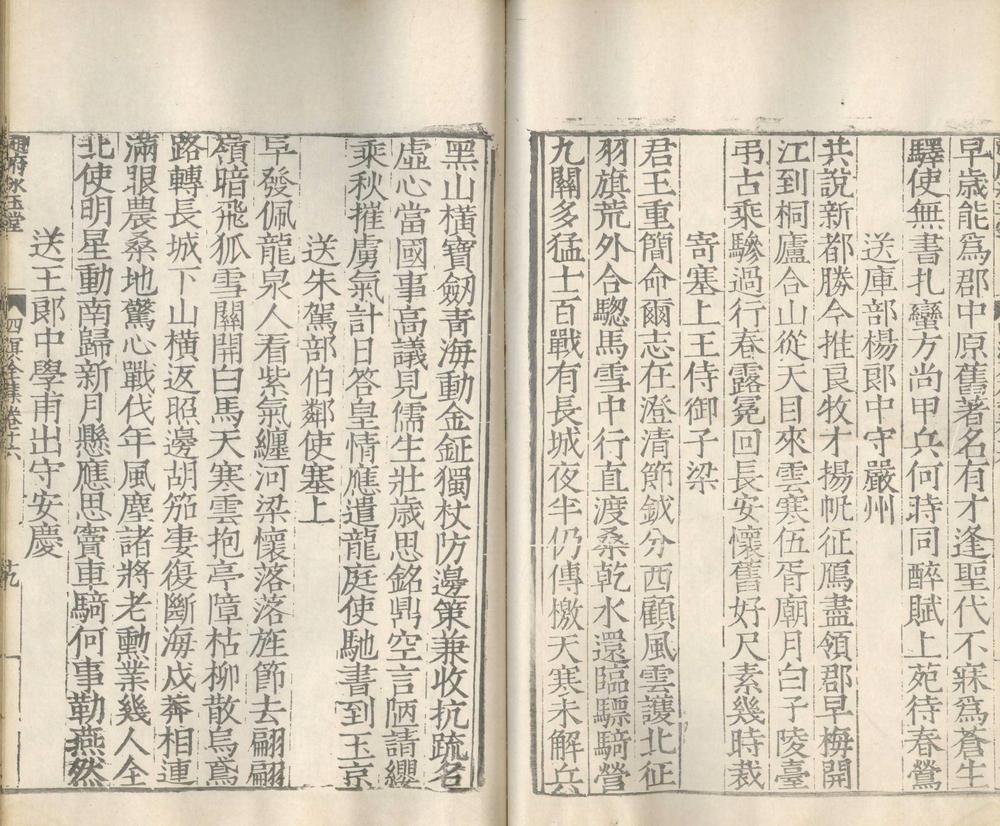 早歲能爲郡中原舊著名有才逢聖代不寐爲蒼生
驛使無書扎蠻方尚甲兵何時同醉賦上苑待春鶯
送庫部楊郎中守嚴州
共說新都勝今推良牧才揚帆征鴈盡領郡早梅開
江到桐廬合山從天目來雲寒伍胥廟月白子陵臺
弔古乘驂過行春露冕回長安懷舊好尺素幾時裁
寄塞上王侍御子梁
君王重簡命爾志在澄清節鉞分西顧風雲護北征
羽旗荒外合驄馬雪中行直渡桑乾水還臨驃騎營
九關多猛士百戰有長城夜半仍傳檄天寒未解兵
黑山橫寶劒青海動金鉦獨杖防邊策兼收抗疏名
虛心當國事高議見儒生壯歲思銘鼎空言陋請纓
乘秋摧虜氣計日答皇情應遣龍庭使馳書到玉京
送朱駕部伯鄰使塞上
早發佩龍泉人看紫氣纏河梁懷落落旌節去翩翩
嶺暗飛狐雪關開白馬天寒雲抱亭障枯柳散烏鳶
路轉長城下山橫返照邊胡笳妻復斷海戍莽相連
滿眼農桑地驚心戰伐年風塵諸將老勳業幾人全
北使明星動南歸新月懸應思竇車騎何事勒燕然
送王郎中學甫出守安慶
趙府冰玉堂
四溟全集卷十六
十九